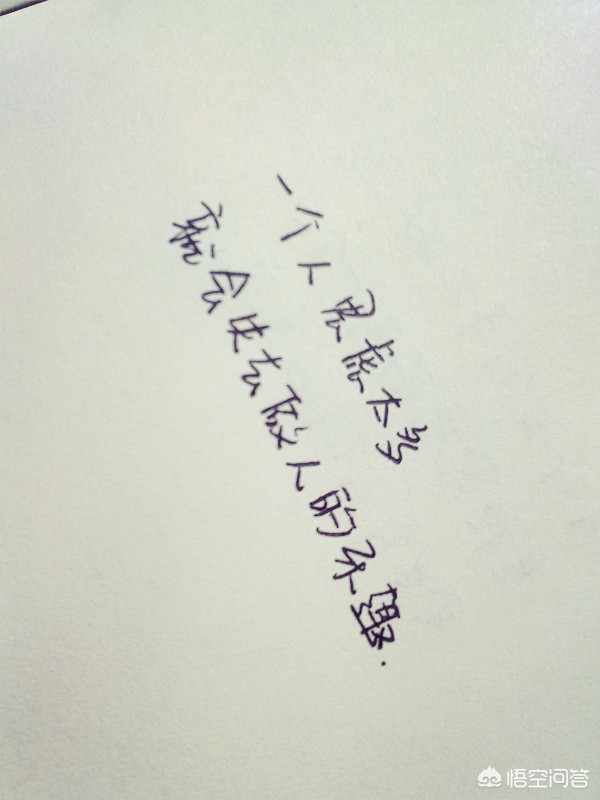 一个人思虑太多
就会失去做人的乐趣.
悟空问答